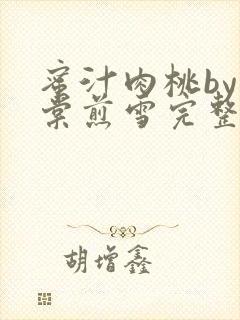 蜜汁肉桃by
棠煎雪完整
胡增鑫